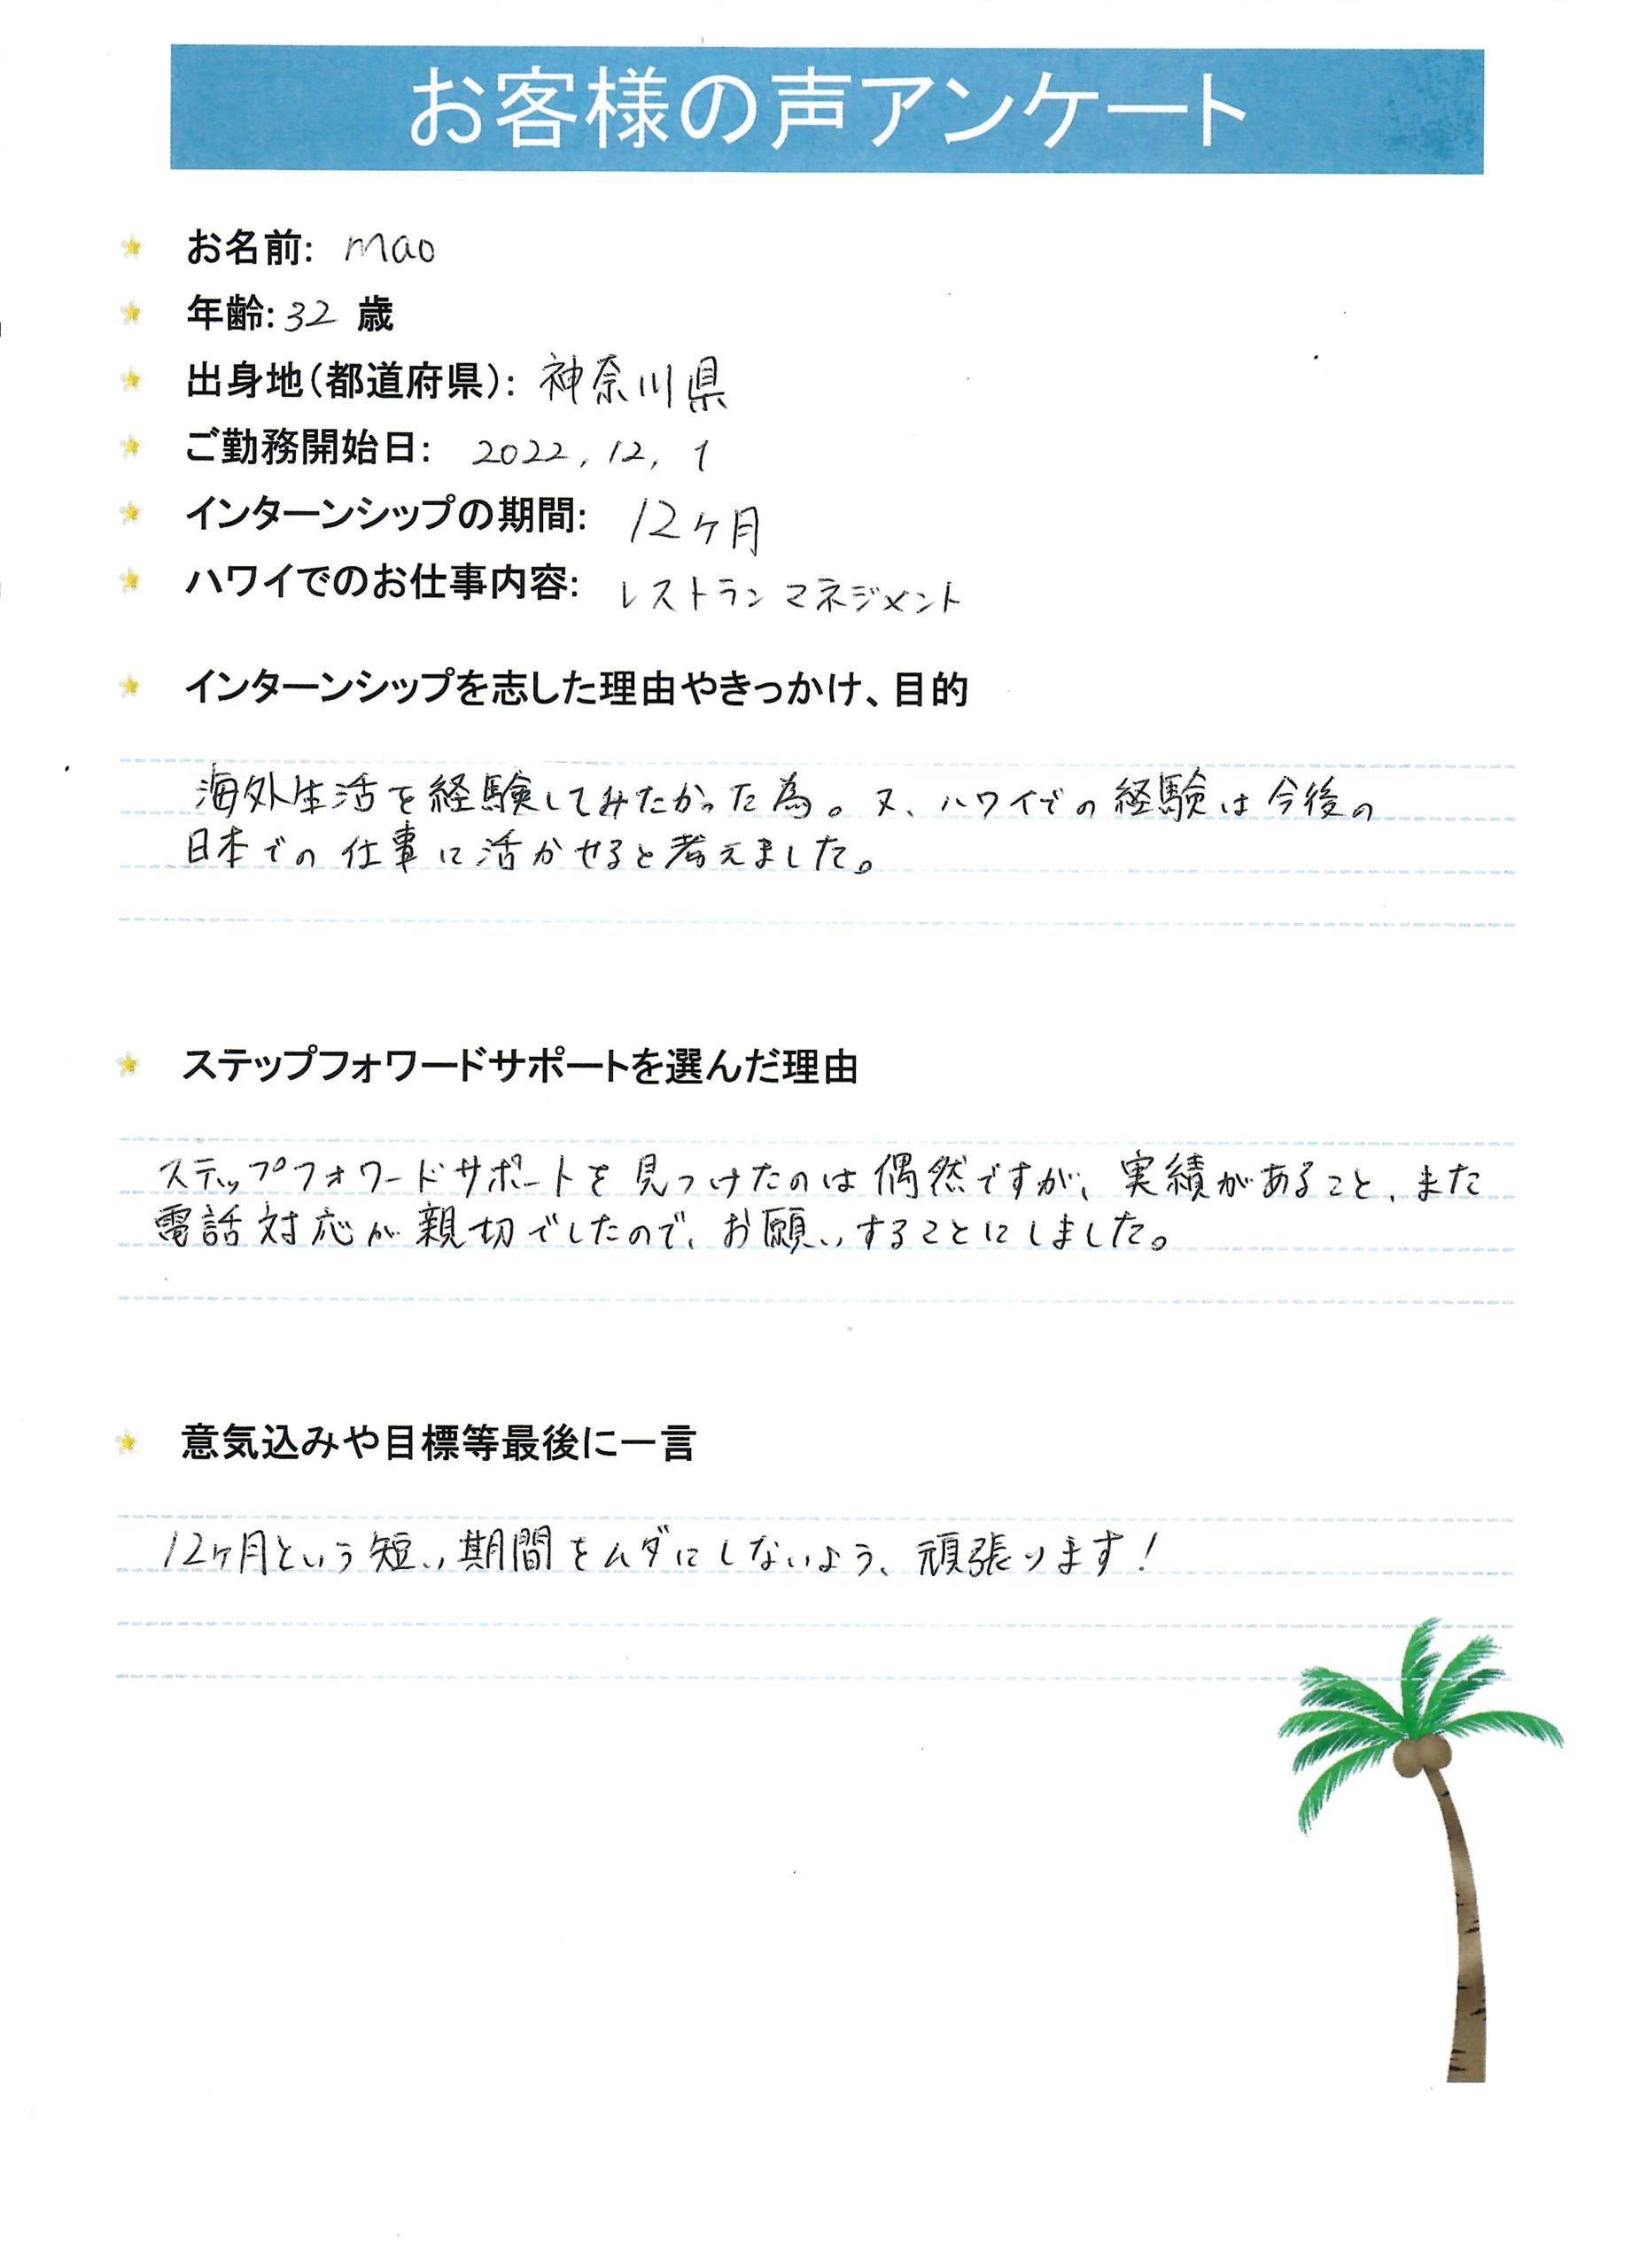 お客様の声アンケート
お名前: mao
年齢: 32 歳
出身地(都道府県): 神奈川県
ご勤務開始日: 2022, 12, 1
インターンシップの期間: 12ヶ月
ハワイでのお仕事内容: レストランマネジメント
インターンシップを志した理由やきっかけ、目的
海外生活を経験してみたかった為。又、ハワイでの経験は今後の
日本での仕事に活かせると考えました。
ステップフォワードサポートを選んだ理由
ステップフォワードサポートを見つけたのは偶然ですが、実績があること、また
電話対応が親切でしたので、お願いすることにしました。
意気込みや目標等最後に一言
12ヶ月という短い期間をムダにしないよう、頑張ります!